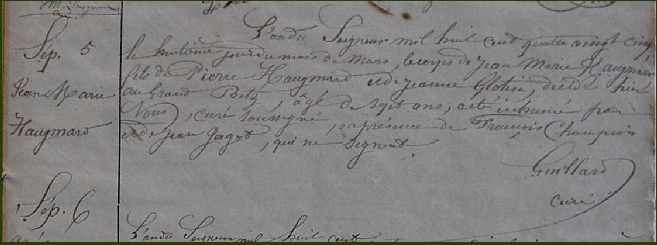 Sép. 5
Jean Marie
Haugmard
L'an du Seigneur mil huit cent quatre vingt cinq
le huitième jour du mois de Mars, le corps de Jean Marie Haugmard
fils de Pierre Haugmard et de Jeanne Glotin, décédé hier
au Grand Betz âgé de sept ans, a été inhumé par
Nous, curé soussigné, en présence de François Champion
et de Jean Jagot, qui ne signent.
Guillard
curé
Sép. 6
L'an du Seigneur mil huit cent